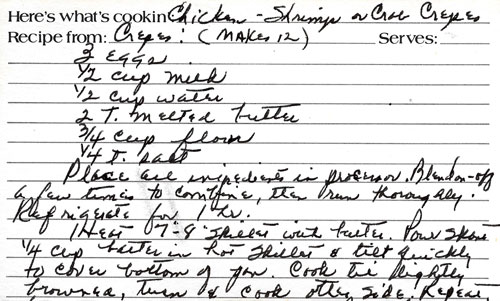 Here's what's cookin Chicken - Shrimp or Crab Crepes
Recipe from: Crepes: (MAKES 12) Serves:
3 EGGS
1/2 cup milk
1/2 cup water
2 T. melted butter
3/4 cup flour
1/4 t. salt
Place all ingredients in processor. Blend on-off
a few times to combine, then run thoroughly.
Refrigerate for 1 hr.
Heat 7-8" skillet with butter. Pour scant
1/4 cup batter in hot skillet & tilt quickly
to cover bottom of pan. Cook til lightly
browned, turn & cook other side. Repeat